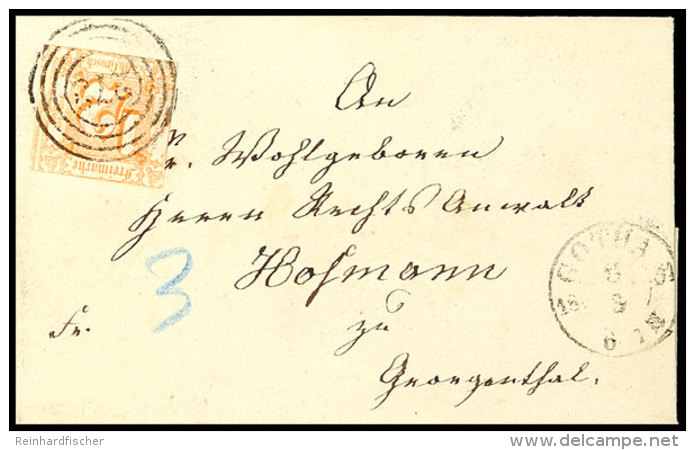 An
Sr. Wohlgeboren
Herrn Rechts Anwalt
Hofmann
Fr.
zu
Georgenthal.
3
GOTHA
Freimarke
Reinhardfischer
www.delcampe.net